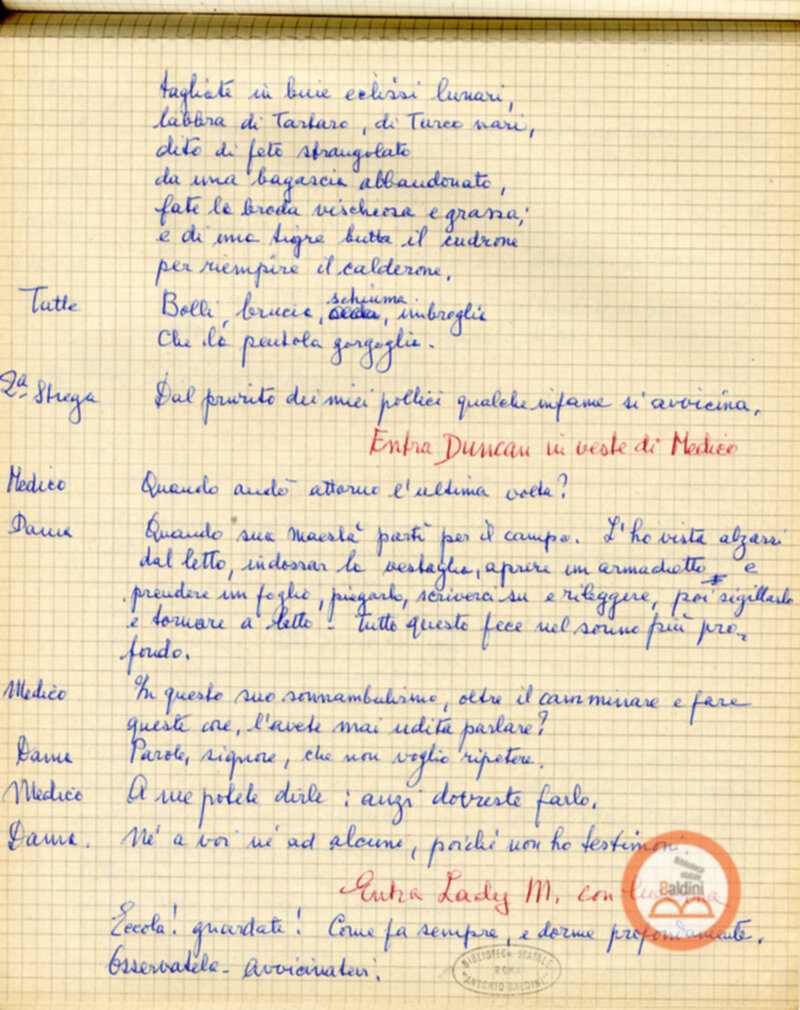 tagliate in buie eclissi lunari,
labbra di Tartaro, di Turco nari,
dito di feto strangolato
da una bagascia abbandonato,
fate la broda vischiosa e grassa;
e di una tigre butta il cudrone
per riempire il calderone.
Tutte Bolli, brucia, schiuma, imbroglia
Che la pentola gorgoglia.
2ª Strega Dal prurito dei miei pollici qualche infame si avvicina.
Entra Duncan in veste di Medico
Medico Quando andò attorno l'ultima volta?
Dama Quando sua maestà partì per il campo. L'ho vista alzarsi
dal letto, indossar la vestaglia, aprire un armadietto e
prendere un foglio, piegarlo, scriverci su e rileggere, poi sigillarlo
e tornare a letto - tutto questo fece nel sonno più pro-
fondo.
Medico In questo suo sonnambulismo, oltre il camminare e fare
queste cose, l'avete mai udita parlare?
Dama Parole, signore, che non voglio ripetere.
Medico A me potete dirle: anzi dovreste farlo.
Dama. Né a voi né ad alcuni, poiché non ho testimoni.
Entra Lady M. con
Eccola! guardate! Come fa sempre, e dorme profondamente.
Osservatela - avvicinatevi.
Biblioteca statale
Baldini
BIBLIOTECA STATALE
ROMA
ANTONIO BALDINI